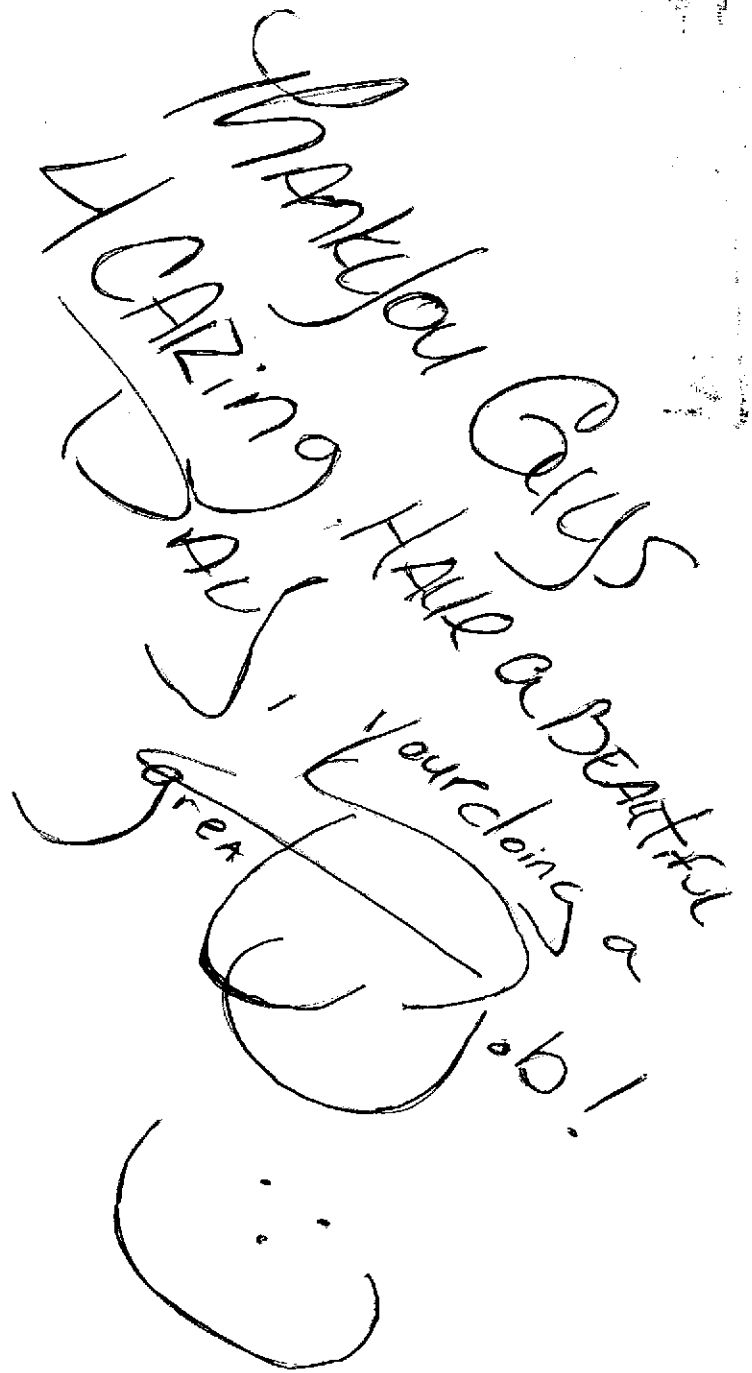 ThankYou Guys
HAVE a BEAUTiful
DAY, Your doing a
great Job!